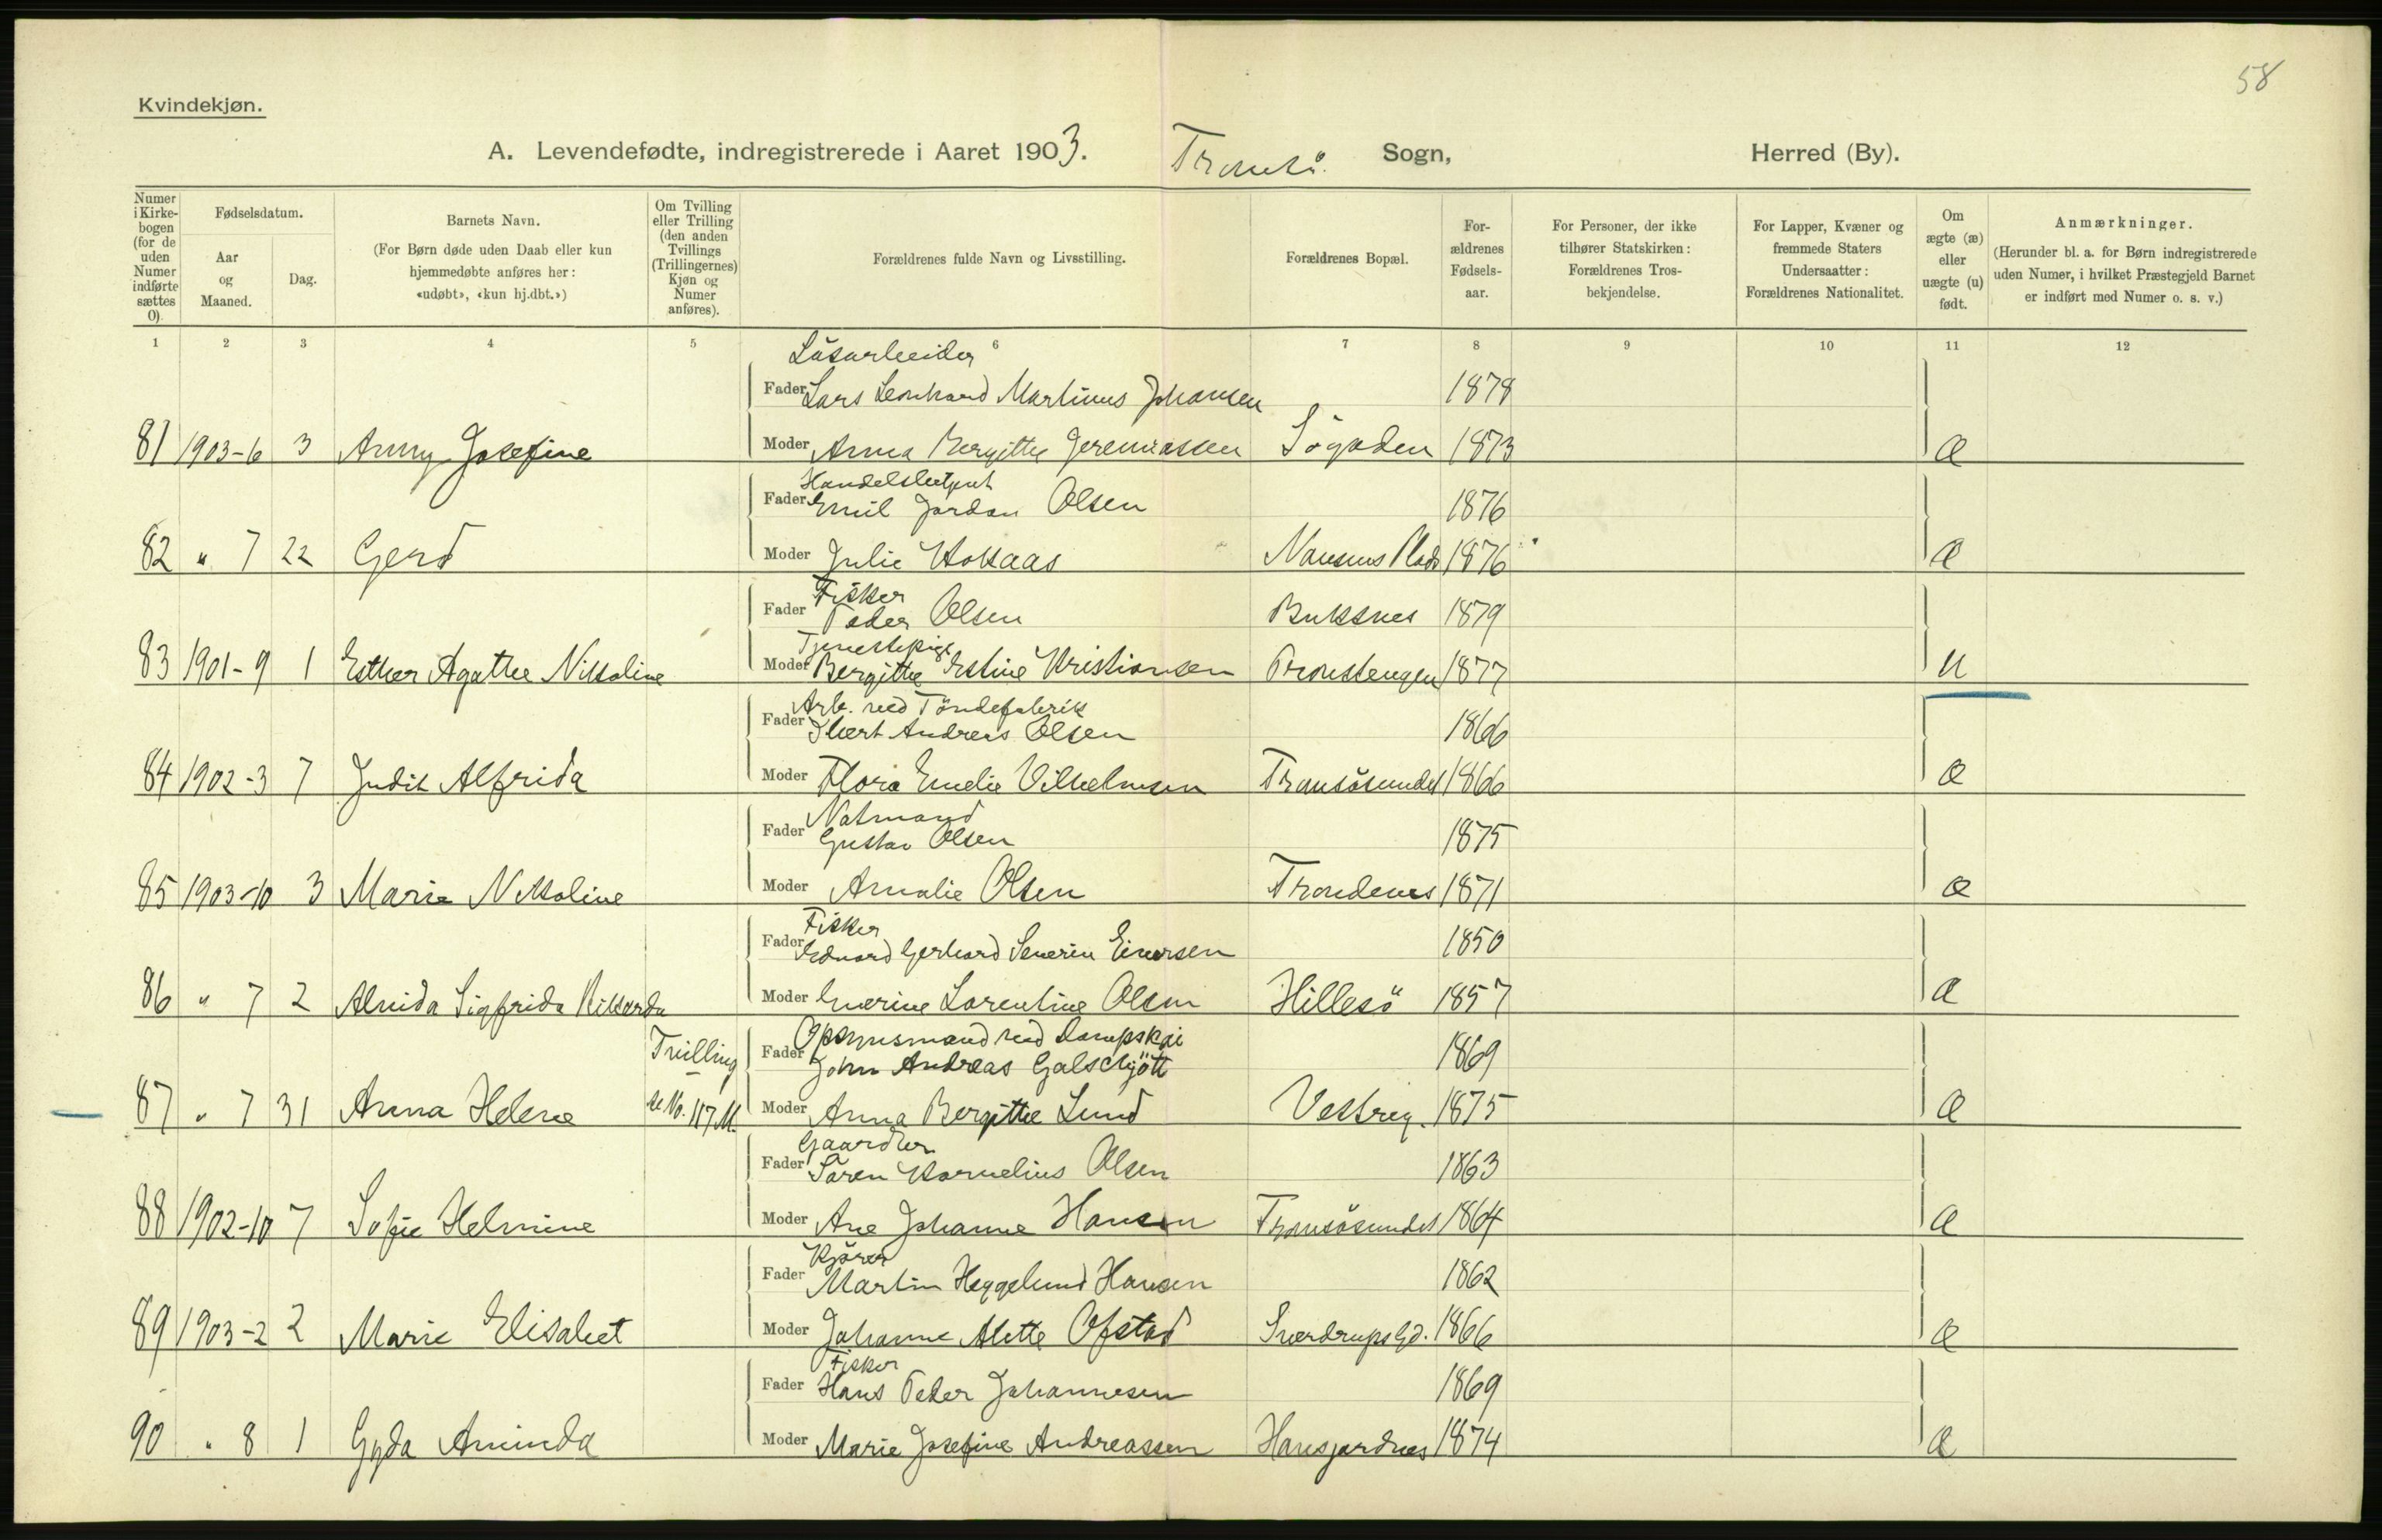 58
Kvindekjøn.
A. Levendefødte, indregistrerede i Aaret 1903. Tromsö. Sogn, Herred (By).
Numer i Kirkebogen (for de uden Numer indførte sættes 0).
Fødselsdatum.
Aar og Maaned.
Dag.
Barnets Navn.
(For Børn døde uden Daab eller kun hjemmedøbte anføres her: «udøbt», «kun hj.dbt.»)
Om Tvilling eller Trilling (den anden Tvillings (Trillingernes) Kjøn og Numer anføres).
Forældrenes fulde Navn og Livsstilling.
Forældrenes Bopæl.
Forældrenes Fødselsaar.
For Personer, der ikke tilhører Statskirken: Forældrenes Trosbekjendelse.
For Lapper, Kvæner og fremmede Staters Undersaatter: Forældrenes Nationalitet.
Om ægte (æ) eller uægte (u) født.
Anmærkninger.
(Herunder bl. a. for Børn indregistrerede uden Numer, i hvilket Præstegjeld Barnet er indført med Numer o. s. v.)
1 2 3 4 5 6 7 8 9 10 11 12
Lösarbeider
Fader Lars Leonhard Martinus Johansen 1878
81 1903-6 3 Anny Josefine Moder Anna Bergitte Jeremiassen Sögaden 1873 æ
Handelsbetjent
Fader Emil Jordan Olsen 1876
82 " 7 22 Gerd Moder Julie Hokaas Nansens Plads 1876 æ
Fisker
Fader Peder Olsen Buksnes 1879
Tjenestepige
83 1901-9 1 Esther Agathe Nikoline Moder Bergitte Estine Kristiansen Pronstengen 1877 u
Arb. ved Töndefabrik
Fader Ebert Andreas Olsen 1866
84 1902-3 7 Judit Alfrida Moder Flora Emelie Vilhelmsen Tromsösundet 1866 æ
Natmand
Fader Gustav Olsen 1875
85 1903-10 3 Marie Nikoline Moder Amalie Olsen Trondenes 1871 æ
Fisker
Fader Edvard Gerhard Severin Einersen 1850
86 " 7 2 Alvida Sigfrida Rikarda Moder Enerine Lorentine Olsen Hillesö 1857 æ
Tvilling Opsynsmand ved Dampskai
Fader John Andreas Galschjött 1869
87 " 7 31 Anna Helene se No. 117 M. Moder Anna Bergitte Lund Vestreg. 1875 æ
Gaardbr
Fader Sören Kornelius Olsen 1863
88 1902-10 7 Sofie Helmine Moder Ane Johanne Hansen Tromsösundet 1864 æ
Kjörer
Fader Martin Heggelund Hansen 1862
89 1903-2 2 Marie Elisabet Moder Johanne Alette Ofstad Sverdrups Gd. 1866 æ
Fisker
Fader Hans Peder Johannesen 1869
90 " 8 1 Gyda Aminda Moder Marie Josefine Andreassen Hansjordnes 1874 æ